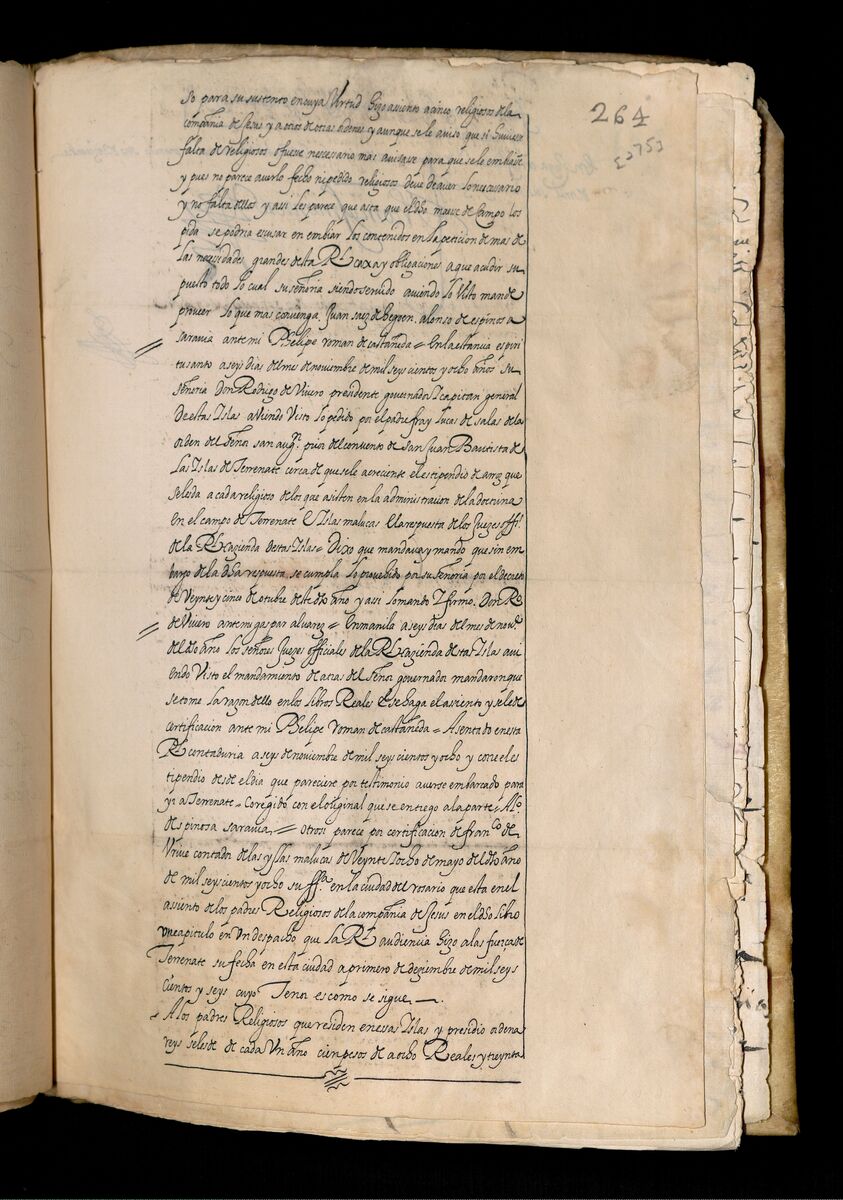 264
[2753
so para su sustento en cuya Virtud hizo asiento a cinco religiosos de la
compañia de Jesus y a otros de otras ordenes y aunque se le aviso que si huviesse
falta de religiosos o fuese necessario mas avisase para que se le embiase
y pues no parece averlo fecho ni pedido religiosos deve de aver lo necessario
y no falta dellos y assi les parece que asta que el dho maese de campo los
pida se podria escusar en embiar los contenidos en la peticion de mas de
las necesidades grandes desta Rl caxa y obligaciones a que acudir su
puesto todo lo cual su señoria siendo servido aviendo lo visto mande
proveer lo que mas convenga. Juan saez de hegoen. alonso de espinosa
saravia ante mi Phelipe roman de castañeda = En la estancia espiri
tusanto a seys dias del mes de noviembre de mil seyscientos y ocho años su
señoria Don Rodrigo de Vivero presidente governador y capitan general
de estas Islas aViendo Visto lo pedido por el padre fray lucas de salas de la
orden del señor san augn. prior del convento de san Juan Bautista de
las islas de Terrenate cerca de que se le acreciente el estipendio de arroz que
se le da a cada religioso de los que asisten en la administracion de la dotrina
en el campo de Terrenate e Islas malucas E la respuesta de los Juezes offi.
de la Rl hazienda destas Islas = Dixo que mandava y mando que sin em
bargo de la dha respuesta se cumpla lo provehido por su señoria por el decreto
de Veynte y cinco de otubre deste dho año y assi lo mando y firmo. Don Ro
de Vivero ante mi gaspar alvarez = En manila a seys dias del mes de nove
del dho año los señores Juezes officiales de la Rl hazienda destas Islas avi
endo Visto el mandamiento de atras del señor governador mandaron que
se tome la razon dello en los libros Reales E se haga el asiento y se le de
certificacion ante mi Phelipe roman de castañeda = Asentado en esta
Rl contaduria a seys de noviembre de mil seyscientos y ocho y corre el es
tipendio desde el dia que pareciere por testimonio averse embarcado para
yr a Terrenate = Coregido con el original que se entrego a la parte = Alo.
de spinosa saravia = otrosi parece por certificacion de franco de
Vrive contador de las yslas malucas de Veynte Iocho de mayo del dho año
de mil seyscientos y ocho su ffa en la ciudad del rosario que esta en el
asiento de los padres Religiosos de la compañia de Jesus en el dho libro
Vn capitulo en Vn despacho que la Rl audiencia hizo a las fuerças de
Terrenate su fecha en esta ciudad a primero de deziembre de mil seys
cientos y seys cuyo Tenor es como se sigue —.
A los padres Religiosos que residen en essas Islas y presidio ordena
reys se les de de cada Vn año cien pesos de a ocho Reales y treynta